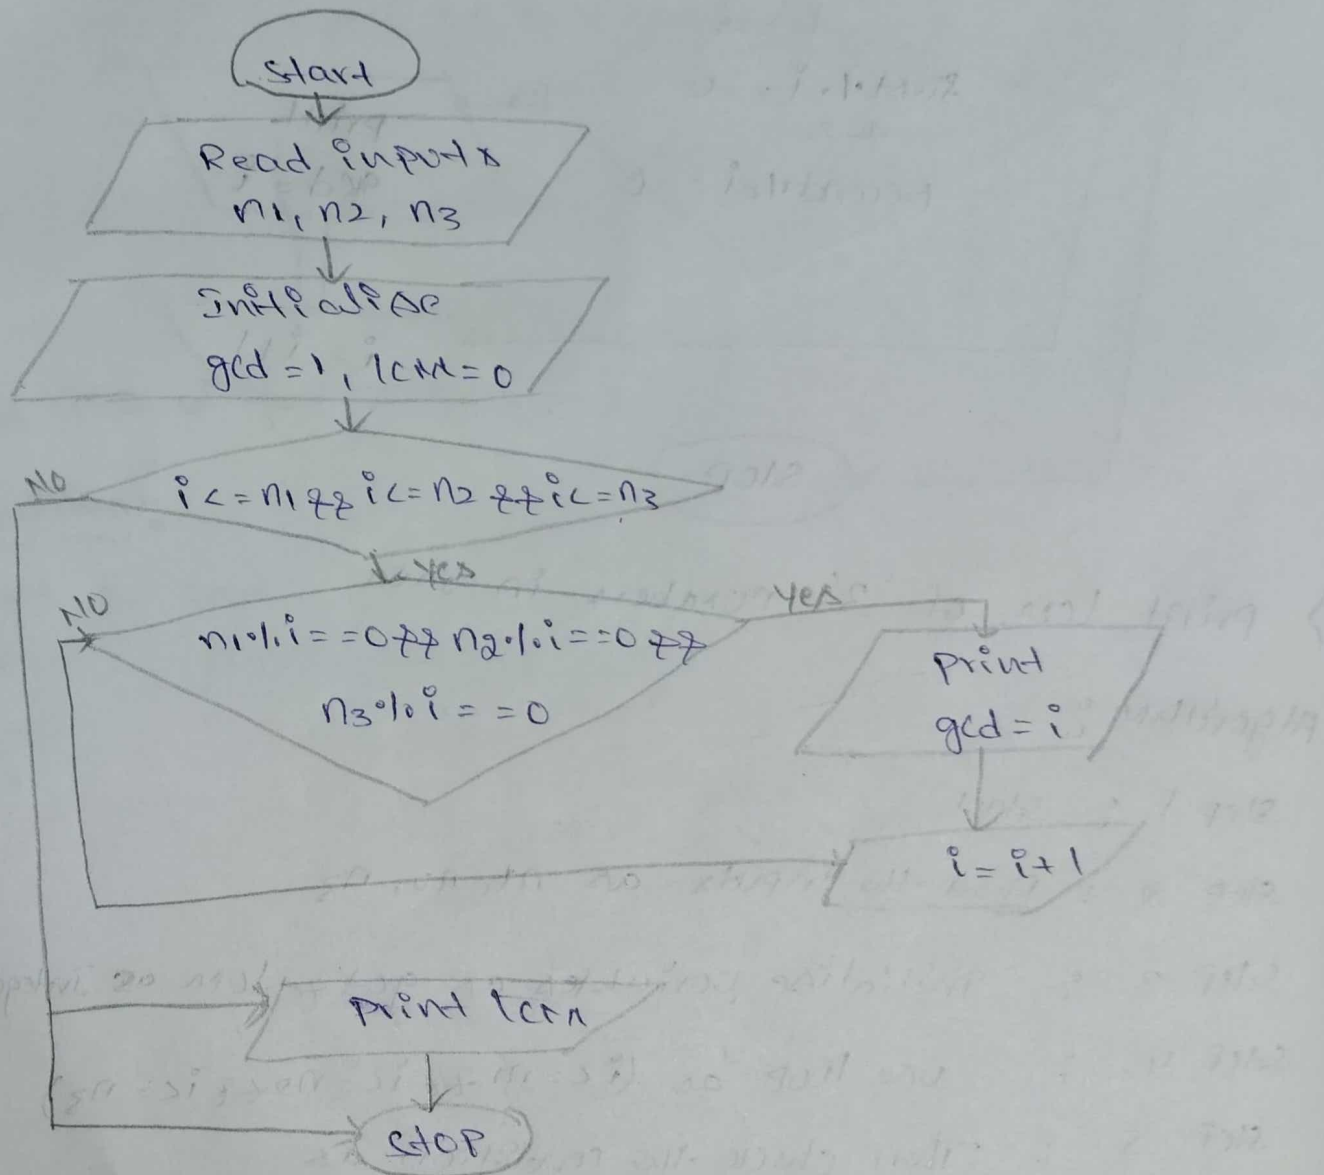 Start
Read inputs
n1, n2, n3
Initialise
gcd = 1, lcm = 0
i <= n1 && i <= n2 && i <= n3
NO
yes
NO
n1 % i == 0 && n2 % i == 0 &&
n3 % i == 0
yes
print
gcd = i
i = i + 1
print lcm
STOP